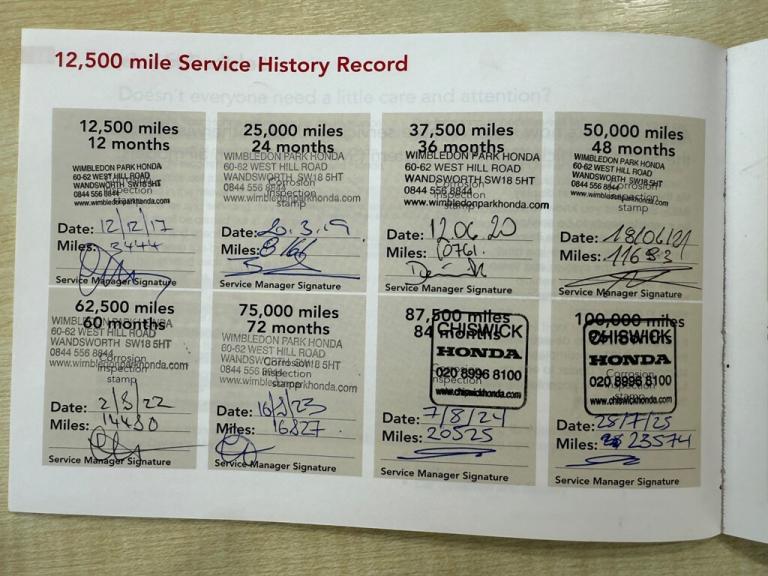 12,500 mile Service History Record
Doesn't everyone need a little care and attention?
12,500 miles
12 months
WIMBLEDON PARK HONDA
60-62 WEST HILL ROAD
WANDSWORTH SW18 5HT
0844 556 8844
www.wimbledonparkhonda.com
Corrosion
Inspection
stamp
Date: 12/12/17
Miles: 3444
Service Manager Signature
25,000 miles
24 months
WIMBLEDON PARK HONDA
60-62 WEST HILL ROAD
WANDSWORTH SW18 5HT
0844 556
www.wimbledonparkhonda.com
Corrosion
Inspection
stamp
Date: 20.3.19
Miles: 8166
Service Manager Signature
37,500 miles
36 months
WIMBLEDON PARK HONDA
60-62 WEST HILL ROAD
WANDSWORTH SW18 5HT
0844 556 8844
www.wimbledonparkhonda.com
Corrosion
Inspection
stamp
Date: 12 06 20
Miles: 10761.
Service Manager Signature
50,000 miles
48 months
WIMBLEDON PARK HONDA
60-62 WEST HILL ROAD
WANDSWORTH SW18 5HT
0844 556 8844
www.wimbledonparkhonda.com
Corrosion
Inspection
stamp
Date: 18/06/21
Miles: 11683
Service Manager Signature
62,500 miles
60 months
WIMBLEDON PARK HONDA
60-62 WEST HILL ROAD
WANDSWORTH SW18 5HT
0844 556 8844
www.wimbledonparkhonda.com
Corrosion
Inspection
stamp
Date: 2/8/22
Miles: 14480
Service Manager Signature
75,000 miles
72 months
WIMBLEDON PARK HONDA
60-62 WEST HILL ROAD
WANDSWORTH SW18 5HT
0844 556
www.wimbledonparkhonda.com
Corrosion
Inspection
stamp
Date: 16/8/23
Miles: 16827
Service Manager Signature
87,500 miles
84 months
CHISWICK
HONDA
020 8996 8100
www.chiswickhonda.com
Corrosion
Inspection
stamp
Date: 7/8/24
Miles: 20525
Service Manager Signature
100,000 miles
96 months
CHISWICK
HONDA
020 8996 8100
www.chiswickhonda.com
Corrosion
Inspection
stamp
Date: 25/7/25
Miles: 23574
Service Manager Signature